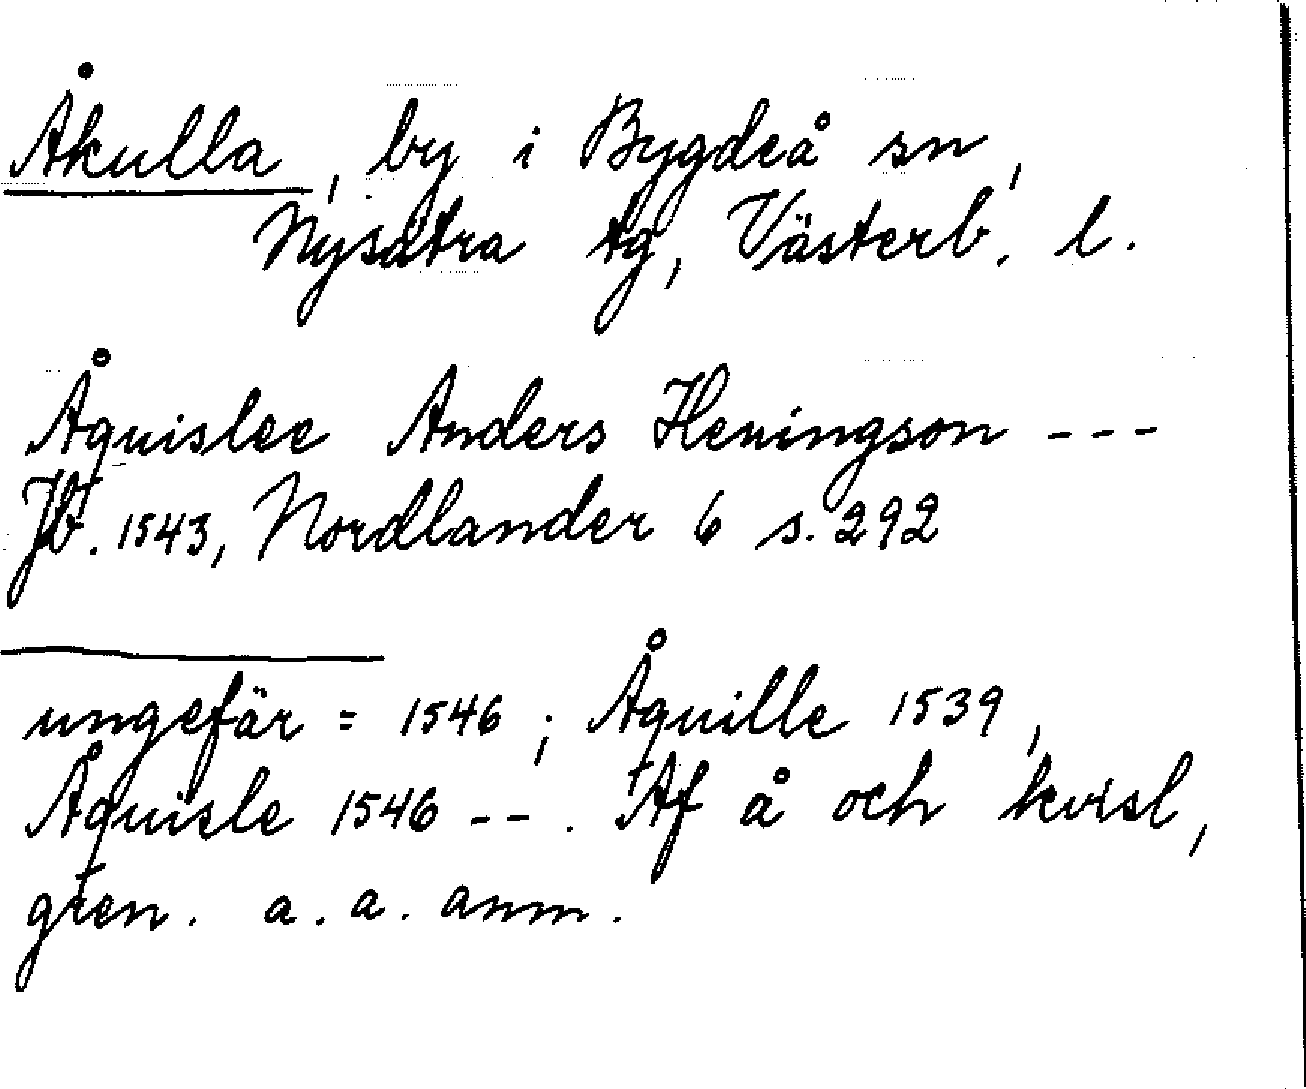 Åkulla, by i Bygdeå sn,
Nysätra tg, Västerb. l.
Åquislee Anders Heningson ---
Jb. 1543, Nordlander 6 s. 292
ungefär = 1546; Åquille 1539,
Åquisle 1546 --. Af å och kvisl,
gren. a. a. anm.